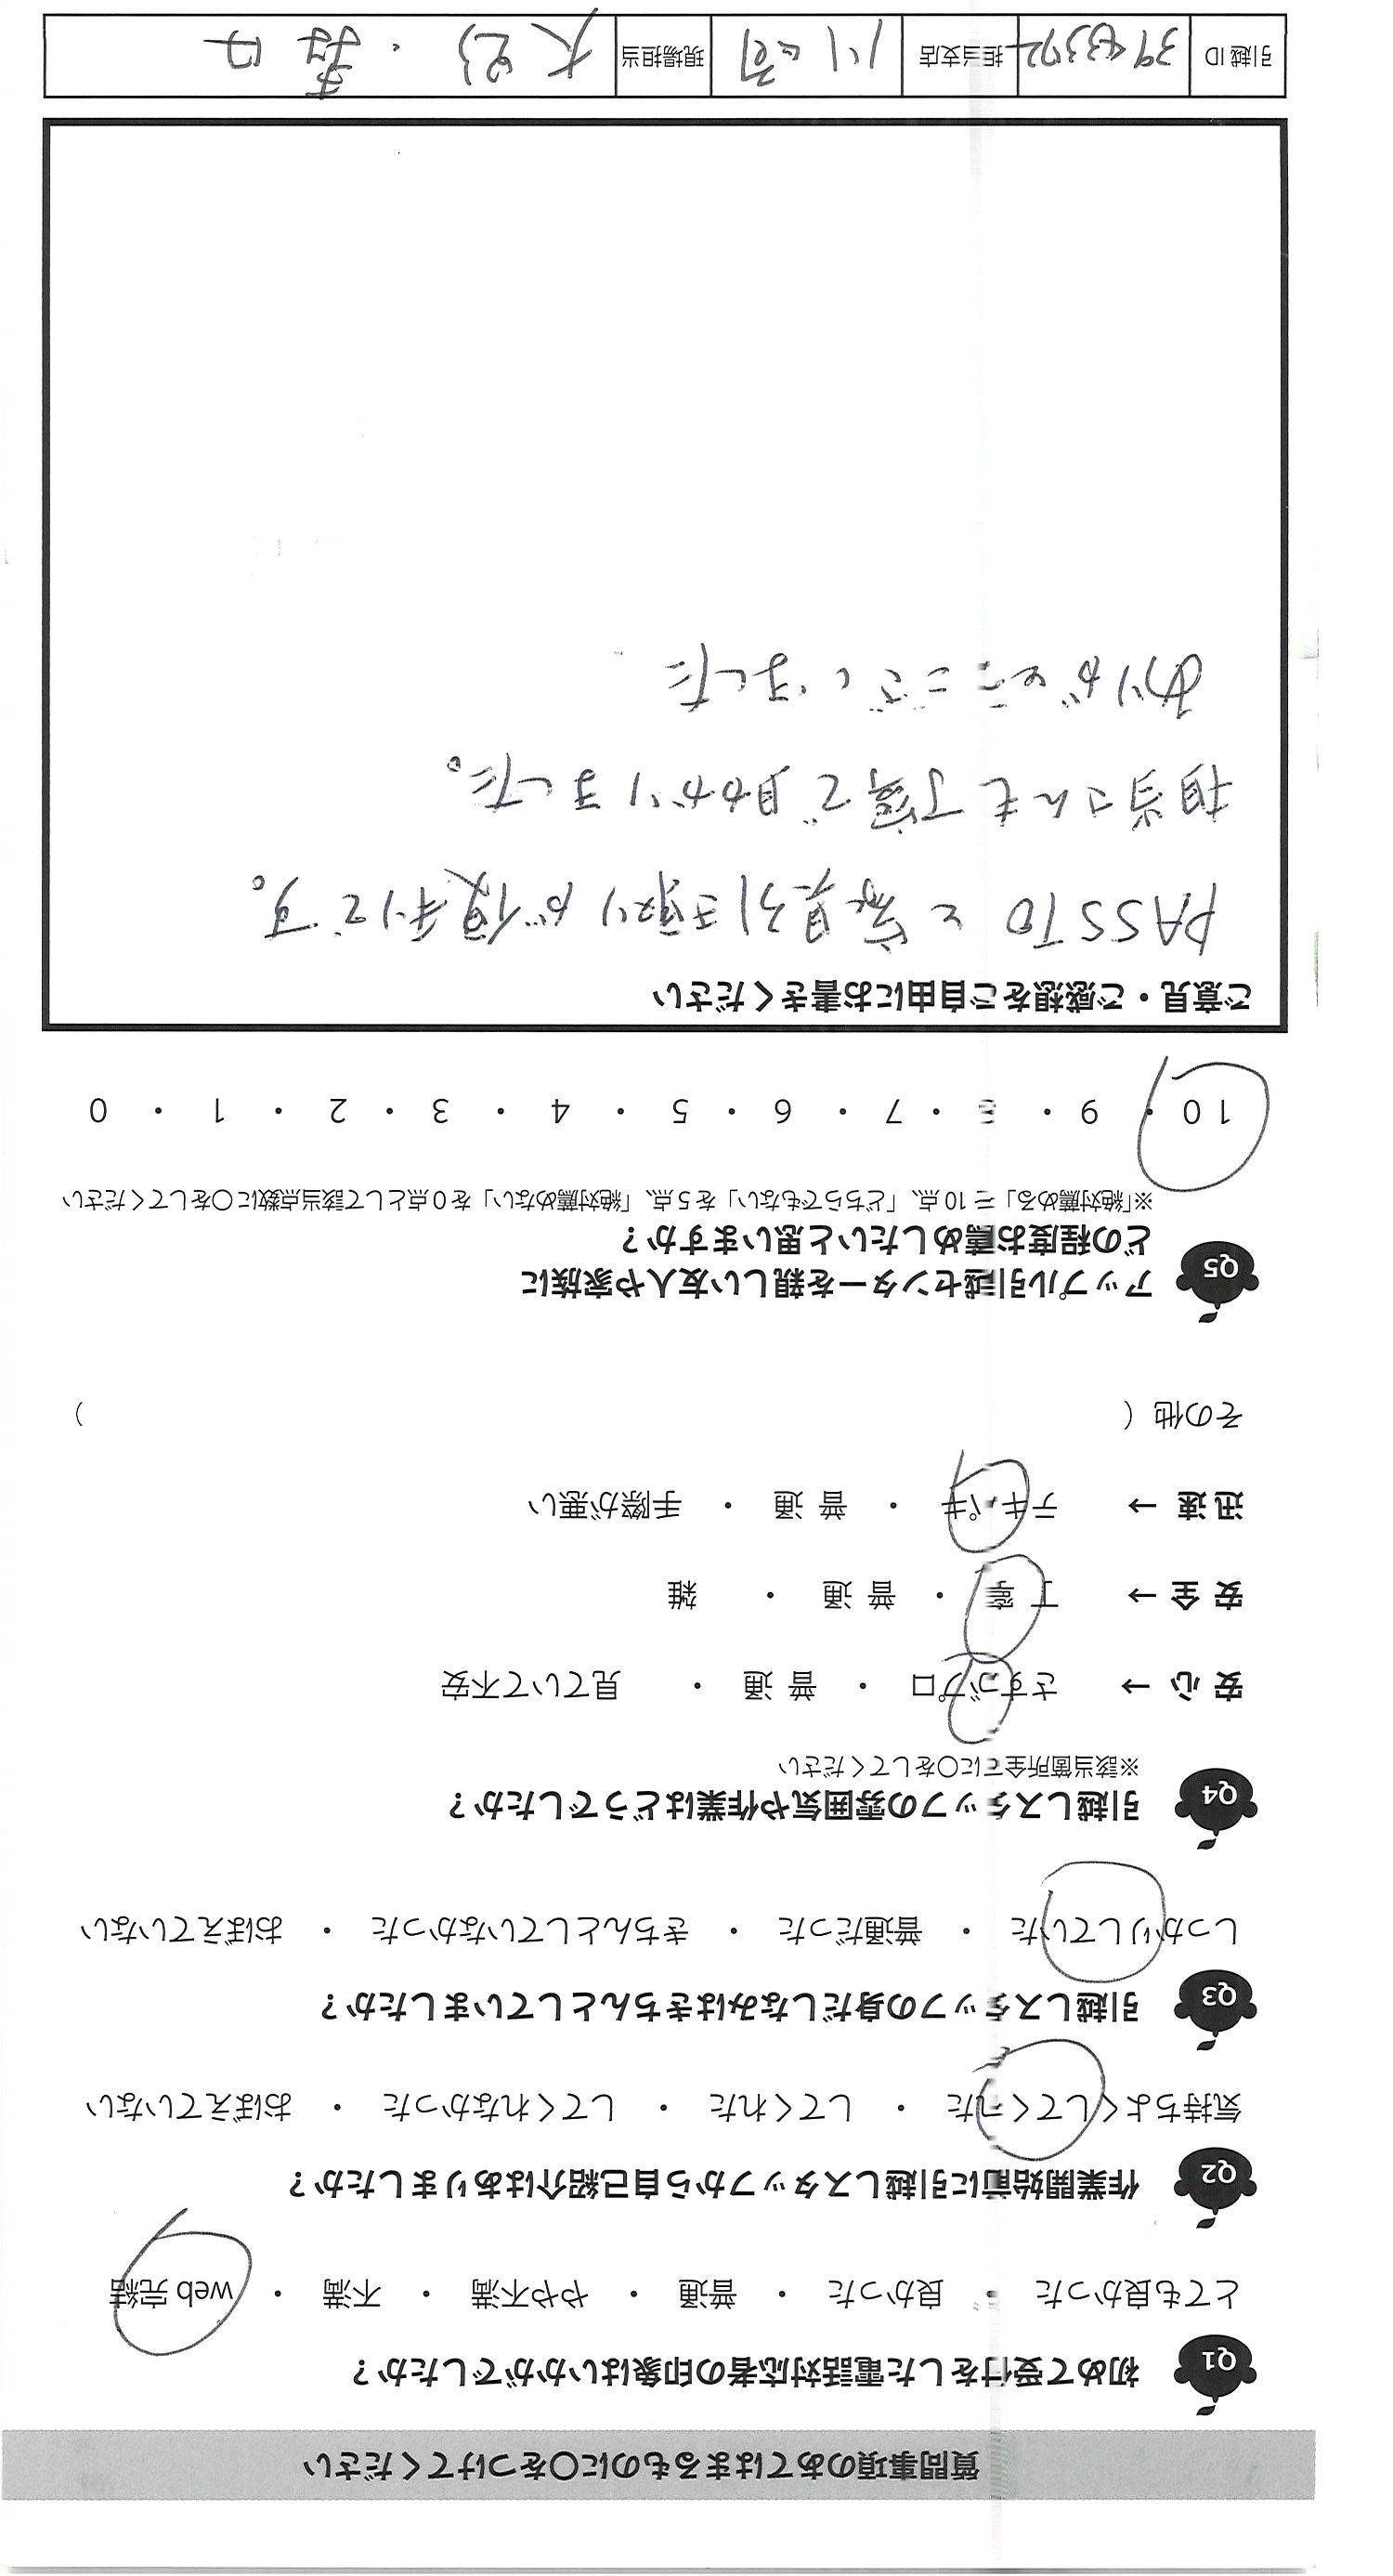 質問事項のあてはまるものに〇をつけてください
Q1 初めて受付をした電話対応者の印象はいかがでしたか？
とても良かった ・ 良かった ・ 普通 ・ やや不満 ・ 不満 ・ web 完結
Q2 作業開始前に引越しスタッフから自己紹介はありましたか？
気持ちよくしてくれた ・ してくれた ・ してくれなかった ・ おぼえていない
Q3 引越しスタッフの身だしなみはきちんとしていましたか？
しっかりしていた ・ 普通だった ・ きちんとしていなかった ・ おぼえていない
Q4 引越しスタッフの雰囲気や作業はどうでしたか？
※該当箇所全てに〇をしてください
安 心 → さすがプロ ・ 普 通 ・ 見ていて不安
安 全 → 丁 寧 ・ 普 通 ・ 雑
迅 速 → テキパキ ・ 普 通 ・ 手際が悪い
その他（ ）
Q5 アップル引越センターを親しい友人や家族に
どの程度お薦めしたいと思いますか？
※「絶対薦める」＝10点、「どちらでもない」を5点、「絶対薦めない」を0点として該当点数に〇をしてください
10 ・ 9 ・ 8 ・ 7 ・ 6 ・ 5 ・ 4 ・ 3 ・ 2 ・ 1 ・ 0
ご意見・ご感想をご自由にお書きください
PASSTOと家具引き取りが便利です。
担当さんも丁寧で助かりました。
ありがとうございました
引越 ID 担当支店 川崎 現場担当